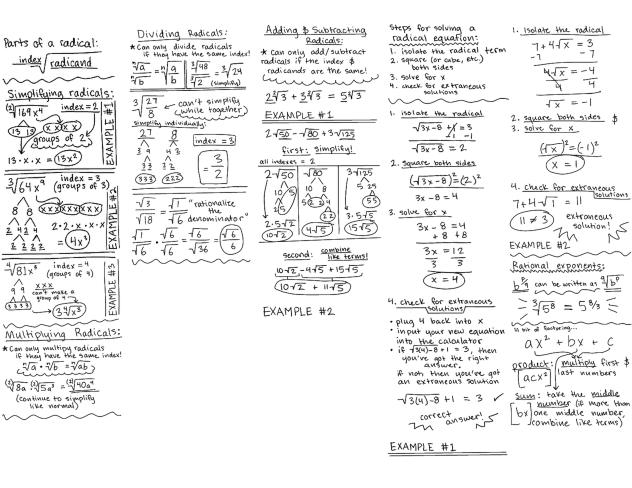 Parts of a radical:
index√radicand
Simplifying radicals:
(2)√169x⁴ index = 2
13 13 x x x x
groups of 2
13·x·x = 13x²
EXAMPLE #1
³√64x⁹ index = 3
(groups of 3)
8 8 xxxxxxxxx
2·2·x·x·x
= 4x³
EXAMPLE #2
⁴√81x³ index = 4
(groups of 4)
9 9 x x x
can't make a
group of 4
3 3 3 3
3⁴√x³
EXAMPLE #3
Multiplying Radicals:
* Can only multiply radicals
if they have the same index!
ⁿ√a · ⁿ√b = ⁿ√ab
(2)√8a (2)√5a³ = (2)√40a⁴
(continue to simplify
like normal)
Dividing Radicals:
* Can only divide radicals
if they have the same index!
ⁿ√a / ⁿ√b = ⁿ√a/b
³√48 / ³√2 = ³√24
(simplify)
³√27/8 can't simplify
(while together)
simplify individually:
27 8
index = 3
9 3 4 2
3 3 3 2 2 2
= 3/2
√3/√18 = 1/√6 "rationalize
the
denominator"
1/√6 · √6/√6 = √6/√36 = √6/6
Adding & Subtracting
Radicals:
* Can only add/subtract
radicals if the index &
radicands are the same!
2³√3 + 3³√3 = 5³√3
EXAMPLE #1
2√50 - √80 + 3√125
first: simplify!
all indexes = 2
2√50 √80 3√125
10 5 10 8 5 25
2 5 5 2 2 4 5 5
2 2
2·5√2 3·5√5
10√2 4√5 15√5
second: combine
like terms!
10√2 - 4√5 + 15√5
10√2 + 11√5
EXAMPLE #2
Steps for solving a
radical equation:
1. isolate the radical term
2. square (or cube, etc.)
both sides
3. solve for x
4. check for extraneous
solutions
1. isolate the radical
√3x-8 + 1 = 3
-1 -1
√3x-8 = 2
2. square both sides
(√3x-8)² = (2)²
3x - 8 = 4
3. solve for x
3x - 8 = 4
+8 +8
3x = 12
3 3
x = 4
4. check for extraneous
solutions
• plug 4 back into x
• input your new equation
into the calculator
• if √3(4)-8 + 1 = 3, then
you've got the right
answer.
if not then you've got
an extraneous solution
√3(4)-8 + 1 = 3 ✓
correct
answer!
EXAMPLE #1
1. isolate the radical
7 + 4√x = 3
-7 -7
4√x = -4
4 4
√x = -1
2. square both sides &
3. solve for x
(√x)² = (-1)²
x = 1
4. check for extraneous
solutions
7 + 4√1 = 11
11 ≠ 3 extroneous
solution!
EXAMPLE #2
Rational exponents:
b^p/q can be written as q√b^p
³√5⁸ = 5^8/3
lil bit of factoring...
ax² + bx + c
product: multiply first &
[acx²] last numbers
sum: take the middle
[bx] number (if more than
one middle number,
combine like terms)